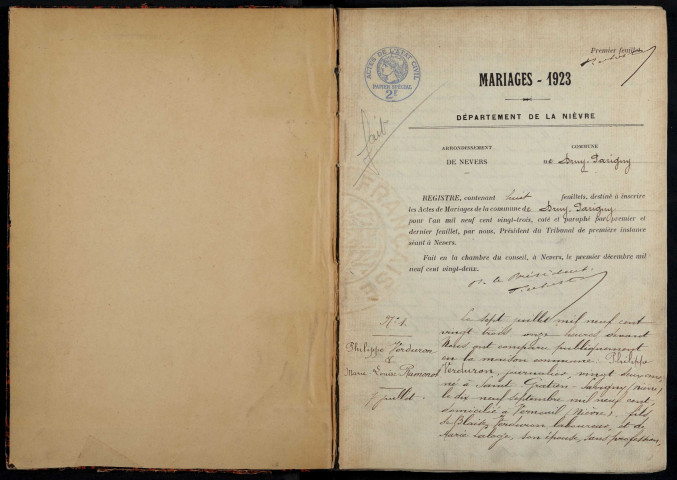 Premier feuillet
MARIAGES - 1923
DÉPARTEMENT DE LA NIÈVRE
ACTES DE L'ÉTAT CIVIL
PAPIER SPECIAL
2F
fait
ARRONDISSEMENT
DE NEVERS
COMMUNE
DE Druy-Parigny
REGISTRE, contenant huit feuillets, destiné à inscrire
les Actes de Mariages de la commune de Druy-Parigny
pour l'an mil neuf cent vingt-trois, coté et paraphé par premier et
dernier feuillet, par nous, Président du Tribunal de première instance
séant à Nevers.
Fait en la chambre du conseil, à Nevers, le premier décembre mil
neuf cent vingt-deux.
P. le Président
N° 1.
Philippe Verduron
&
Marie Louise
7 juillet
Le sept juillet mil neuf cent
vingt trois onze heures devant
Nous ont comparu publiquement
en la maison commune Philippe
Verduron, journalier, vingt deux ans
né à Saint Gratien Savigny (Nièvre)
le dix neuf septembre mil neuf cent
domicilié à Verneuil (Nièvre), fils
de Blaise Verduron laboureur, et de
Marie son épouse, sans profession,